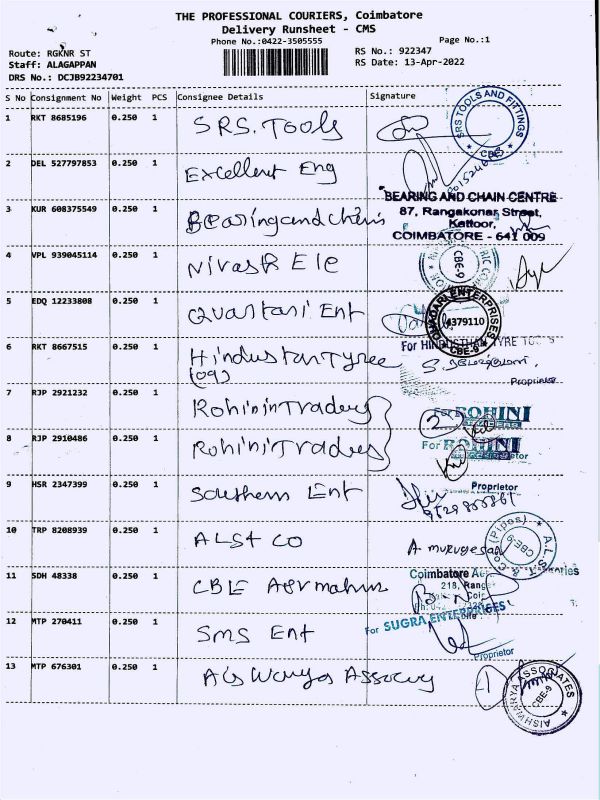 THE PROFESSIONAL COURIERS, Coimbatore
Delivery Runsheet - CMS
Phone No.:0422-3505555
Page No.:1
Route: RGKNR ST
RS No.: 922347
Staff: ALAGAPPAN
RS Date: 13-Apr-2022
DRS No.: DCJB92234701
S No Consignment No Weight PCS Consignee Details Signature
1 RKT 8685196 0.250 1 SRS. Tools
SRS TOOLS AND FITTINGS
CBE
2 DEL 527797853 0.250 1 Excellent Eng
BEARING AND CHAIN CENTRE
3 KUR 608375549 0.250 1 Bearingandchain
87, Rangakonar Street,
Kattoor,
COIMBATORE - 641 009
4 VPL 939045114 0.250 1 Nivash Ele
CBE-9
5 EDQ 12233808 0.250 1 Ent
ENTERPRISES
4379110
CBE-9
6 RKT 8667515 0.250 1 Hindustan Tyree
For HINDUSTHAN TYRE
(09)
Proprietor
7 RJP 2921232 0.250 1 Rohinin Traders
For ROHINI
8 RJP 2910486 0.250 1 Rohini Traders
For ROHINI
Proprietor
9 HSR 2347399 0.250 1 Southern Ent
Proprietor
10 TRP 8208939 0.250 1 ALS & CO
A murugesan
A.L.S. & Co. (Pipes)
CBE-9
11 SDH 48338 0.250 1 CBE
Coimbatore
218,
12 MTP 270411 0.250 1 SMS Ent
For SUGRA ENTERPRISES
Proprietor
13 MTP 676301 0.250 1
AISHWARYA ASSOCIATES
CBE-9